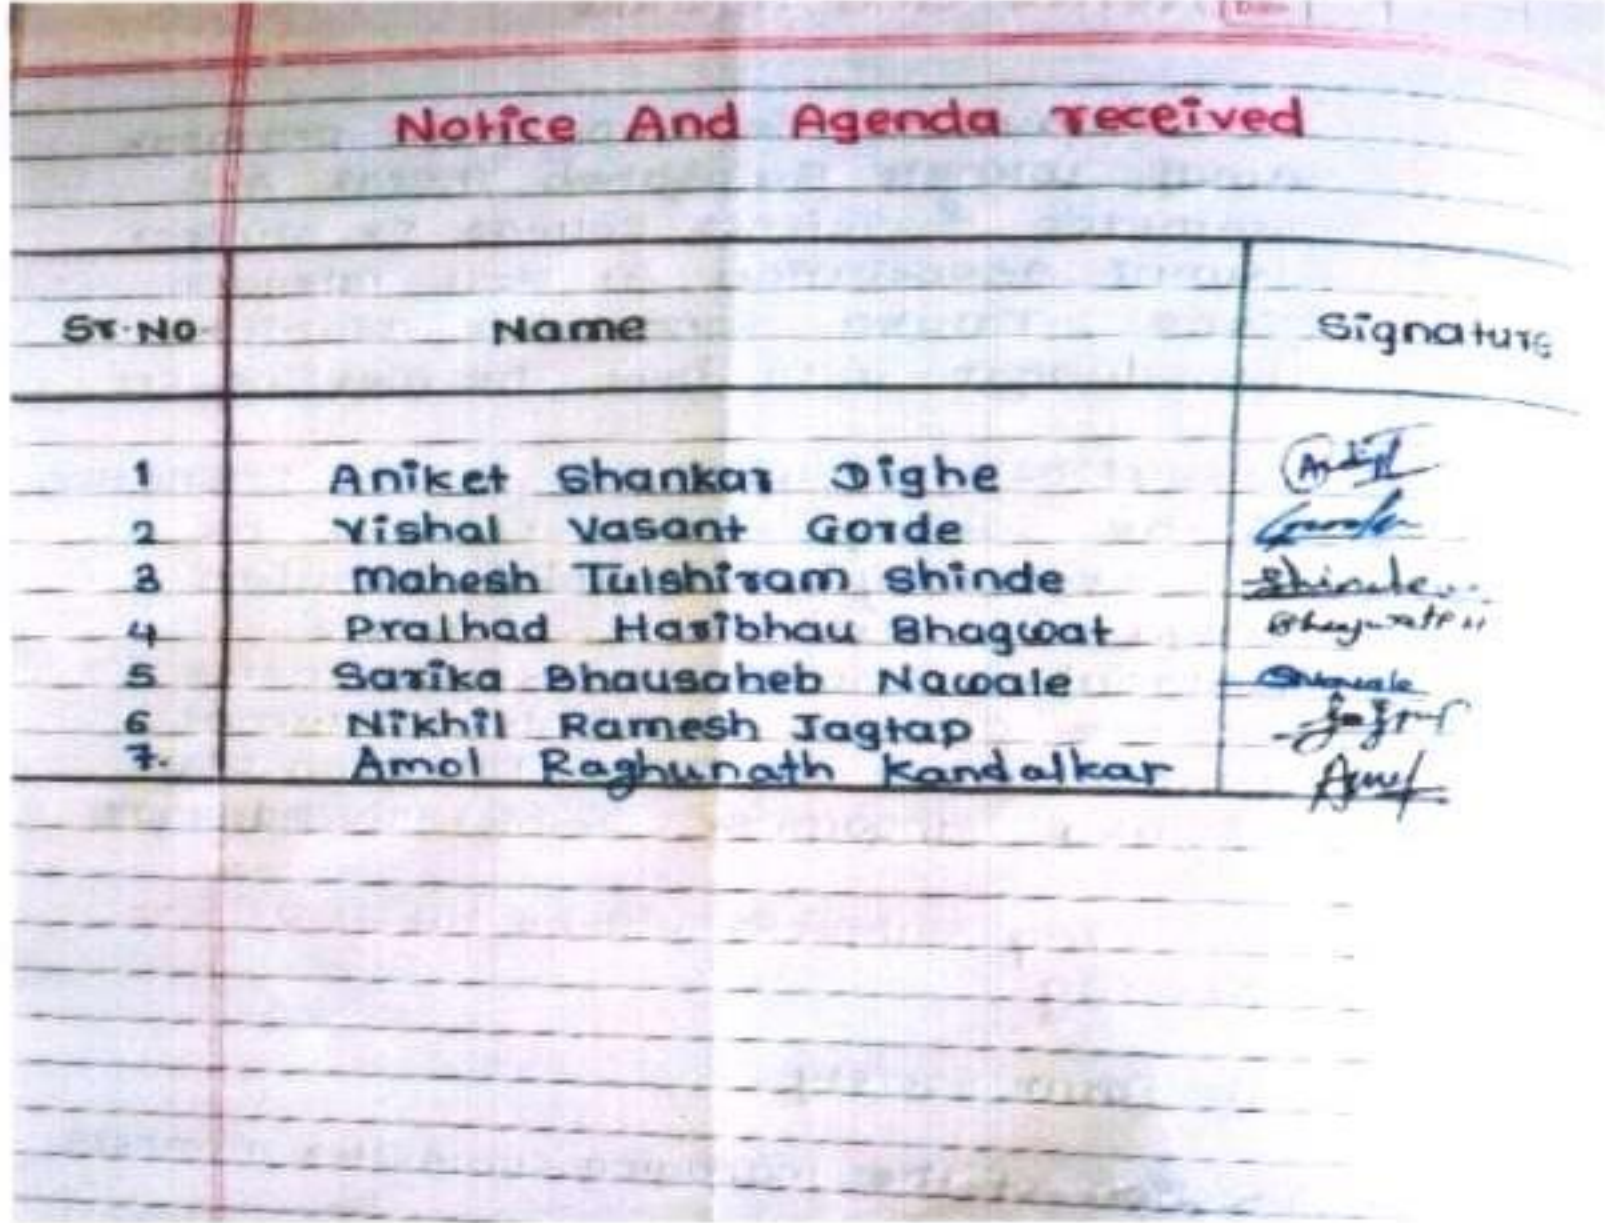 Notice And Agenda received
Sr.No. Name Signature
1 Aniket Shankar Dighe
2 Vishal Vasant Gorde
3 Mahesh Tulshiram Shinde Shinde..
4 Pralhad Haribhau Bhagwat
5 Sarika Bhausaheb Nawale
6 Nikhil Ramesh Jagtap
7. Amol Raghunath Kandalkar